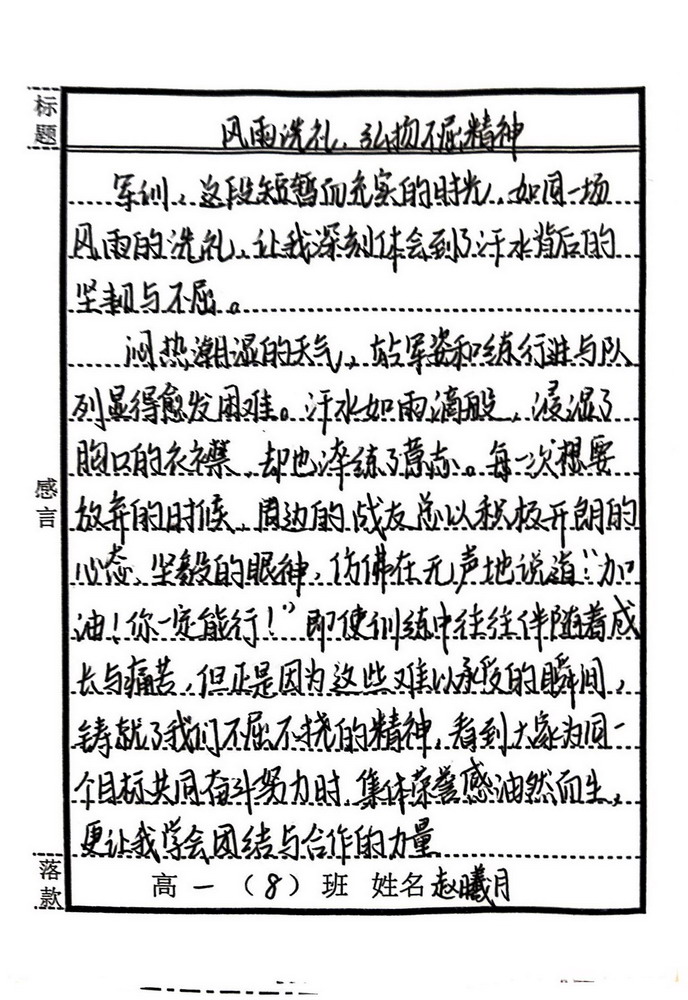 标题
风雨洗礼，弘扬不屈精神
军训，这段短暂而充实的时光，如同一场
风雨的洗礼，让我深刻体会到了汗水背后的
坚韧与不屈。
闷热潮湿的天气，站军姿和练行进与队
列显得愈发困难。汗水如雨滴般，浸湿了
胸口的衣襟，却也淬练了意志。每一次想要
放弃的时候，周边的战友总以积极开朗的
心态，坚毅的眼神，仿佛在无声地说道："加
油！你一定能行！"即使训练中往往伴随着成
长与痛苦，但正是因为这些难以承受的瞬间，
铸就了我们不屈不挠的精神，看到大家为同一
个目标共同奋斗努力时，集体荣誉感油然而生，
更让我学会团结与合作的力量
感言
落款
高一（8）班 姓名赵曦月